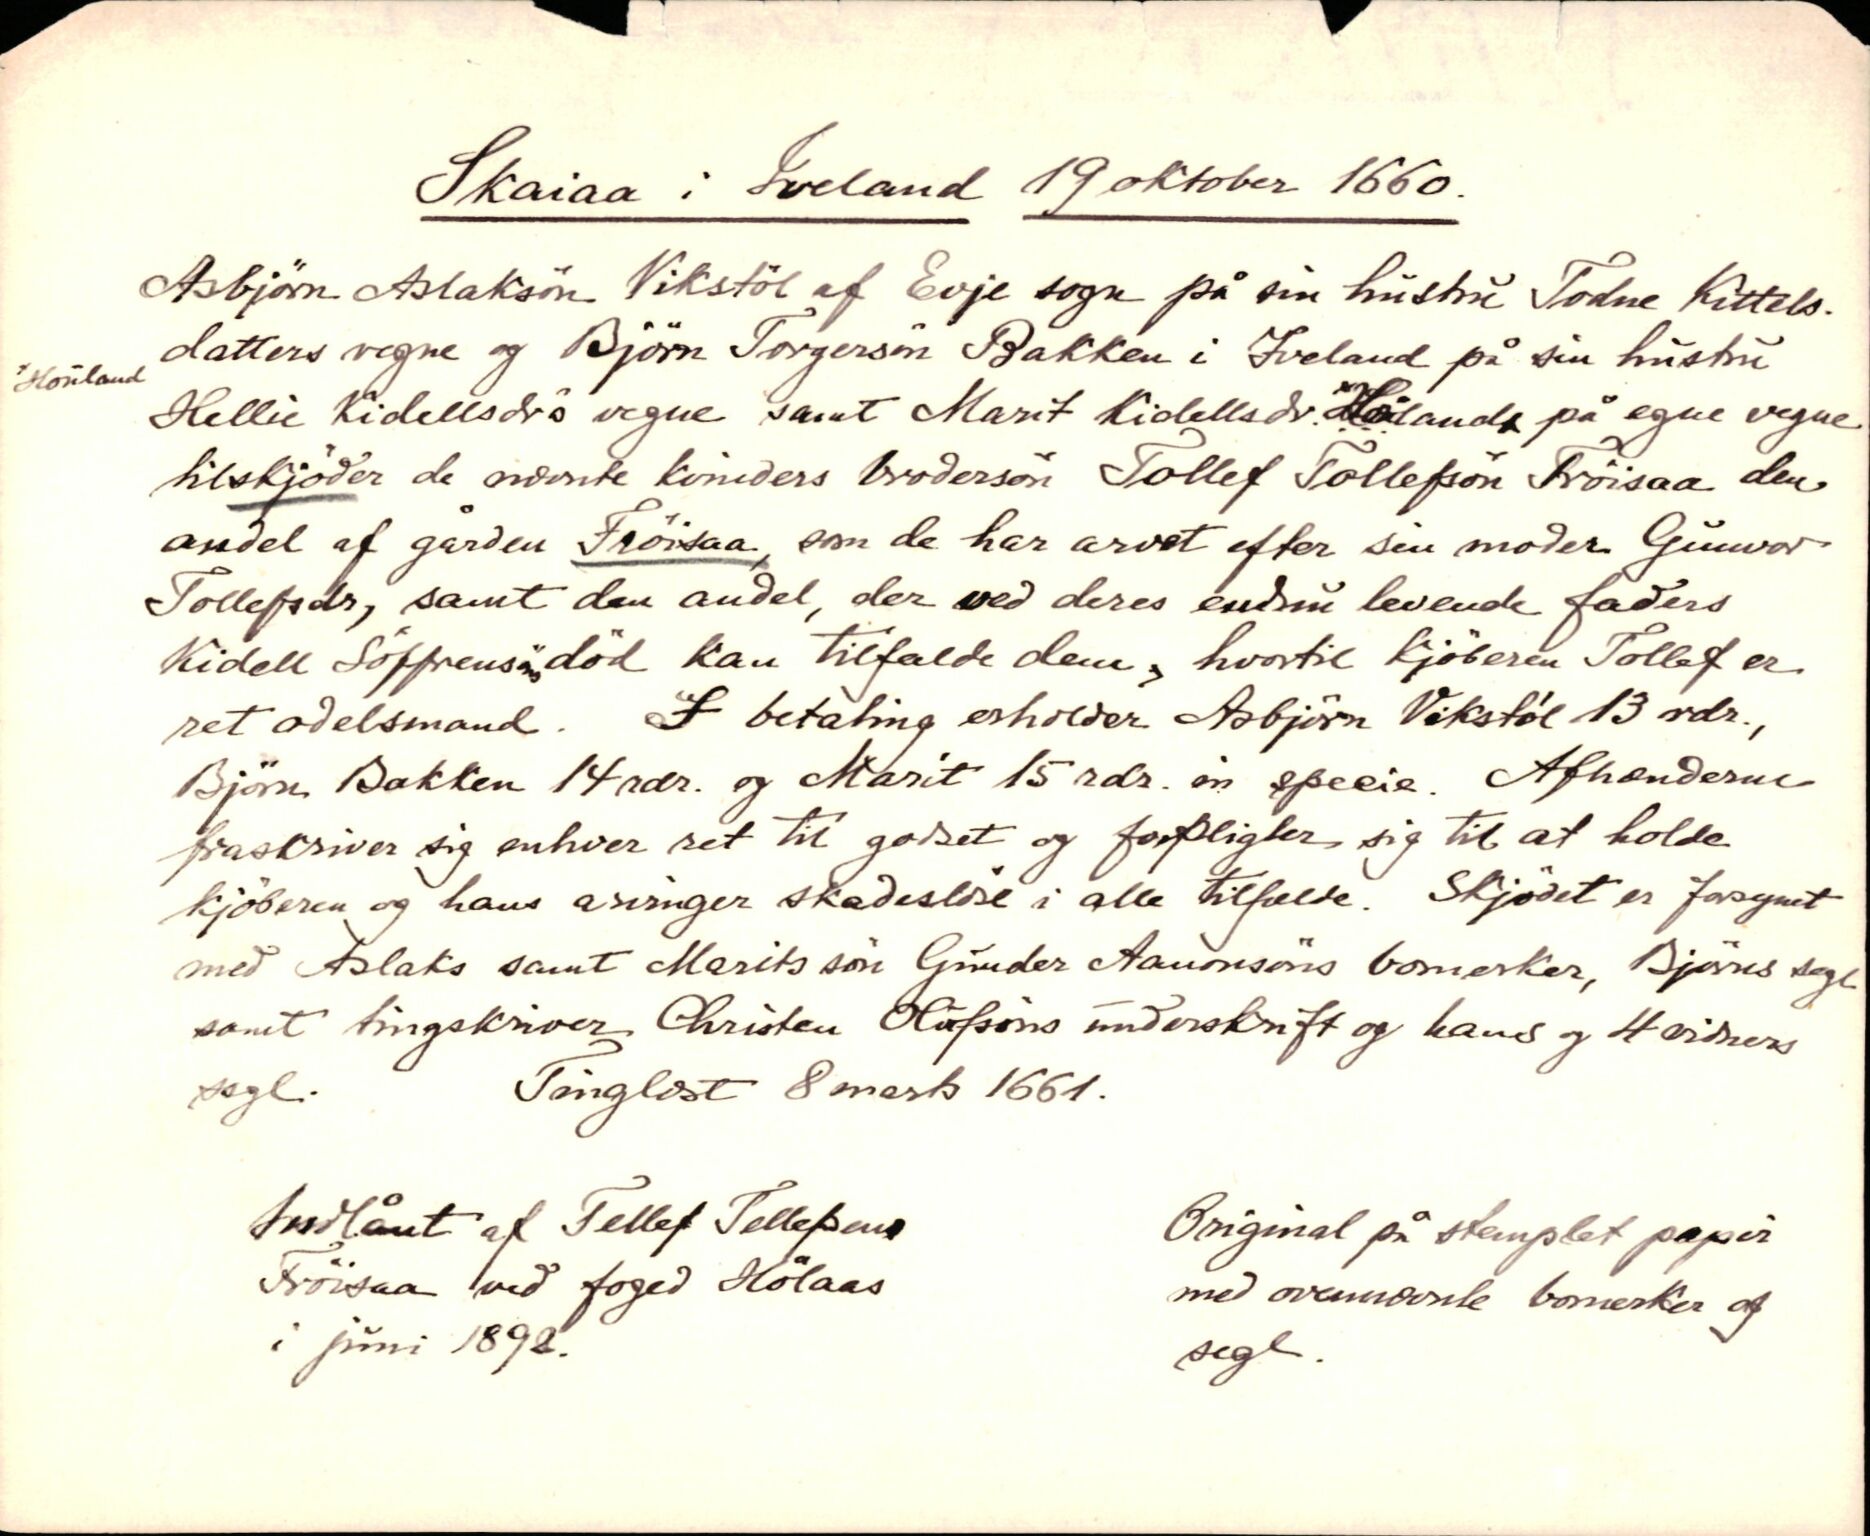 Skaiaa i Iveland 19 oktober 1660.
Asbjörn Aslaksön Vikstöl af Evje sogn på sin hustru Todne Kittels-
datters vegne og Björn Torgersön Bakken i Iveland på sin hustru
Houland
Hellie Kidellsdrs vegne samt Marit Kidellsdr. Houland på egne vegne
tilskjöder de nævnte kvinders brodersön Tollef Tollefsön Fröisaa den
andel af gården Fröisaa, som de har arvet efter sin moder Gunvor
Tollefsdr, samt den andel, der ved deres endnu levende faders
Kidell Söffrensöns död kan tilfalde dem, hvortil kjöberen Tollef er
ret odelsmand. I betaling erholder Asbjörn Vikstöl 13 rdr.,
Björn Bakken 14 rdr. og Marit 15 rdr. in specie. Afhænderne
fraskriver sig enhver ret til godset og forpligter sig til at holde
kjöberen og hans arvinger skadeslöse i alle tilfælde. Skjödet er forsynt
med Aslaks samt Marits sön Gunder Aanonsöns bomerker, Björns segl
samt tingskriver Christen Olufsöns underskrift og hans og 4 vidners
segl. Tinglæst 8 marts 1661.
Indlånt af Tellef Tellefsen
Fröisaa ved foged Hölaas
i juni 1892.
Original på stemplet papir
med ovennævnte bomerker og
segl.